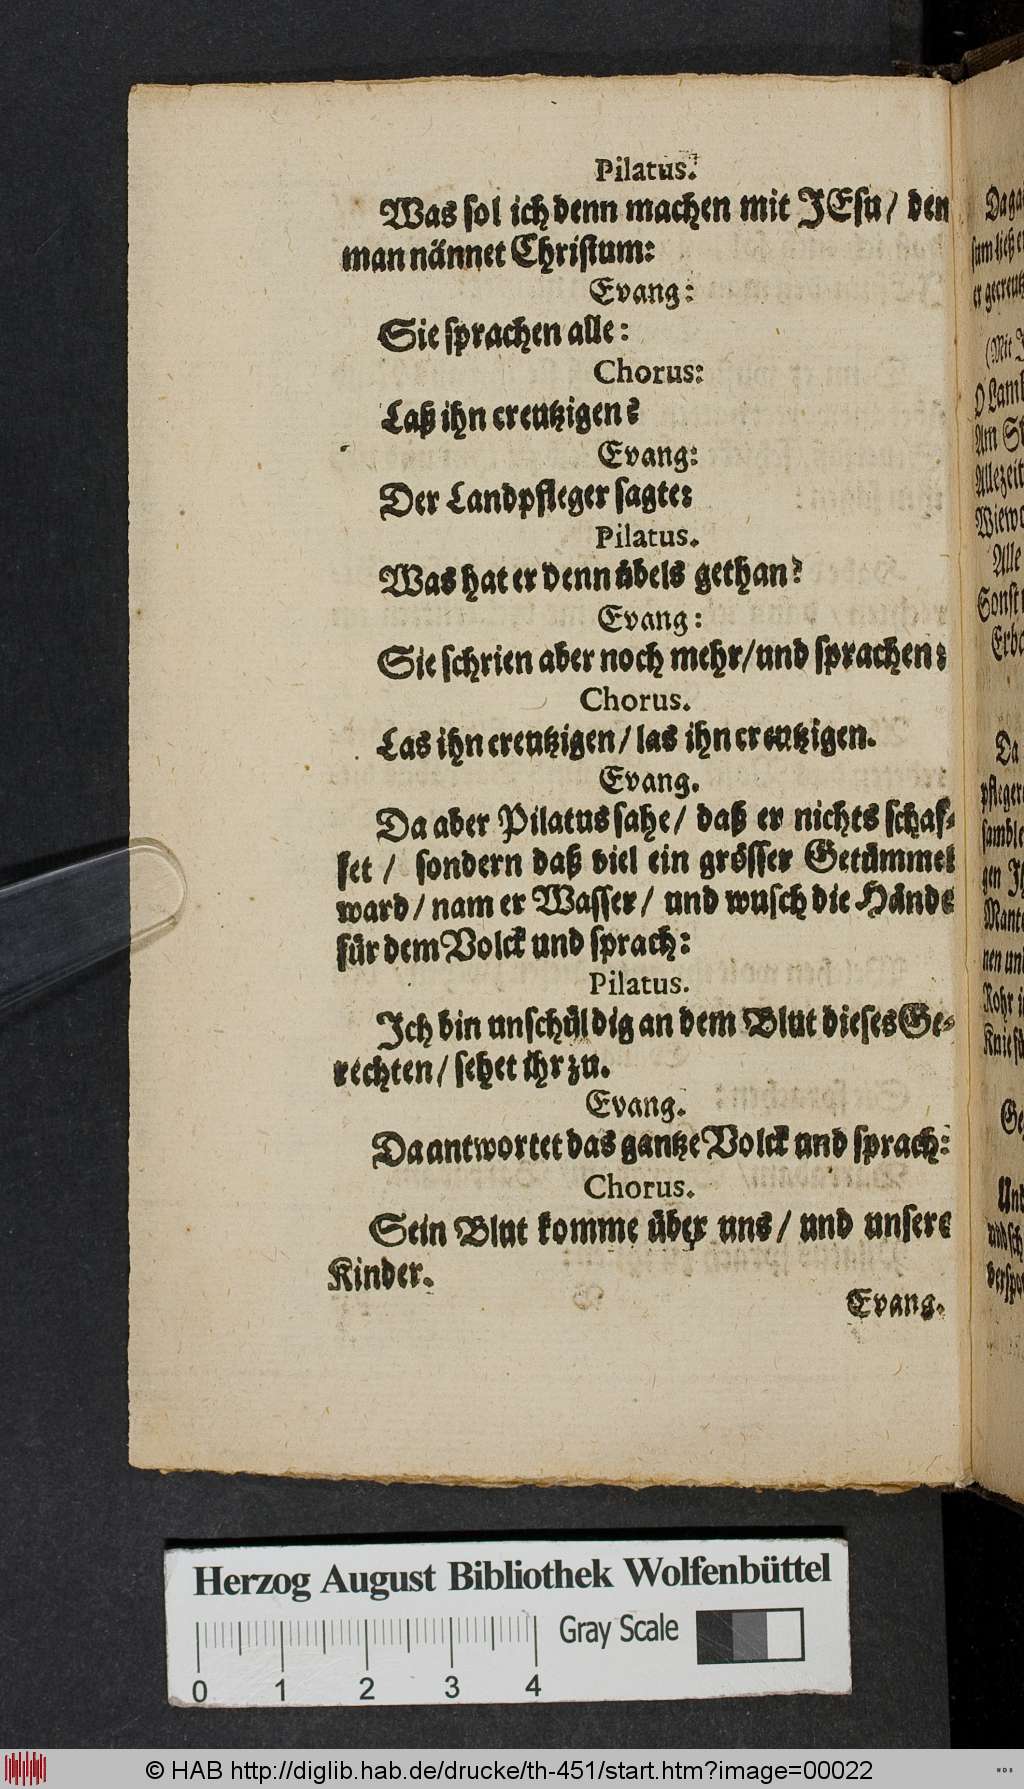 Pilatus.
Was sol ich denn machen mit JEsu / den
man nännet Christum:
Evang:
Sie sprachen alle:
Chorus:
Laß ihn creutzigen:
Evang:
Der Landpfleger sagte:
Pilatus.
Was hat er denn übels gethan?
Evang:
Sie schrien aber noch mehr/und sprachen:
Chorus.
Las ihn creutzigen / las ihn creutzigen.
Evang.
Da aber Pilatus sahe / daß er nichts schaf-
fet / sondern daß viel ein grösser Getümmel
ward / nam er Wasser / und wusch die Hände
für dem Volck und sprach:
Pilatus.
Ich bin unschüldig an dem Blut dieses Ge-
rechten / sehet ihr zu.
Evang.
Da antwortet das gantze Volck und sprach:
Chorus.
Sein Blut komme über uns / und unsere
Kinder.
Evang.
(Mit
O Lamb
Am
Allezeit
Alle
Sonst
Da
gen
nen
Rohr
Herzog August Bibliothek Wolfenbüttel
Gray Scale
0 1 2 3 4
© HAB http://diglib.hab.de/drucke/th-451/start.htm?image=00022